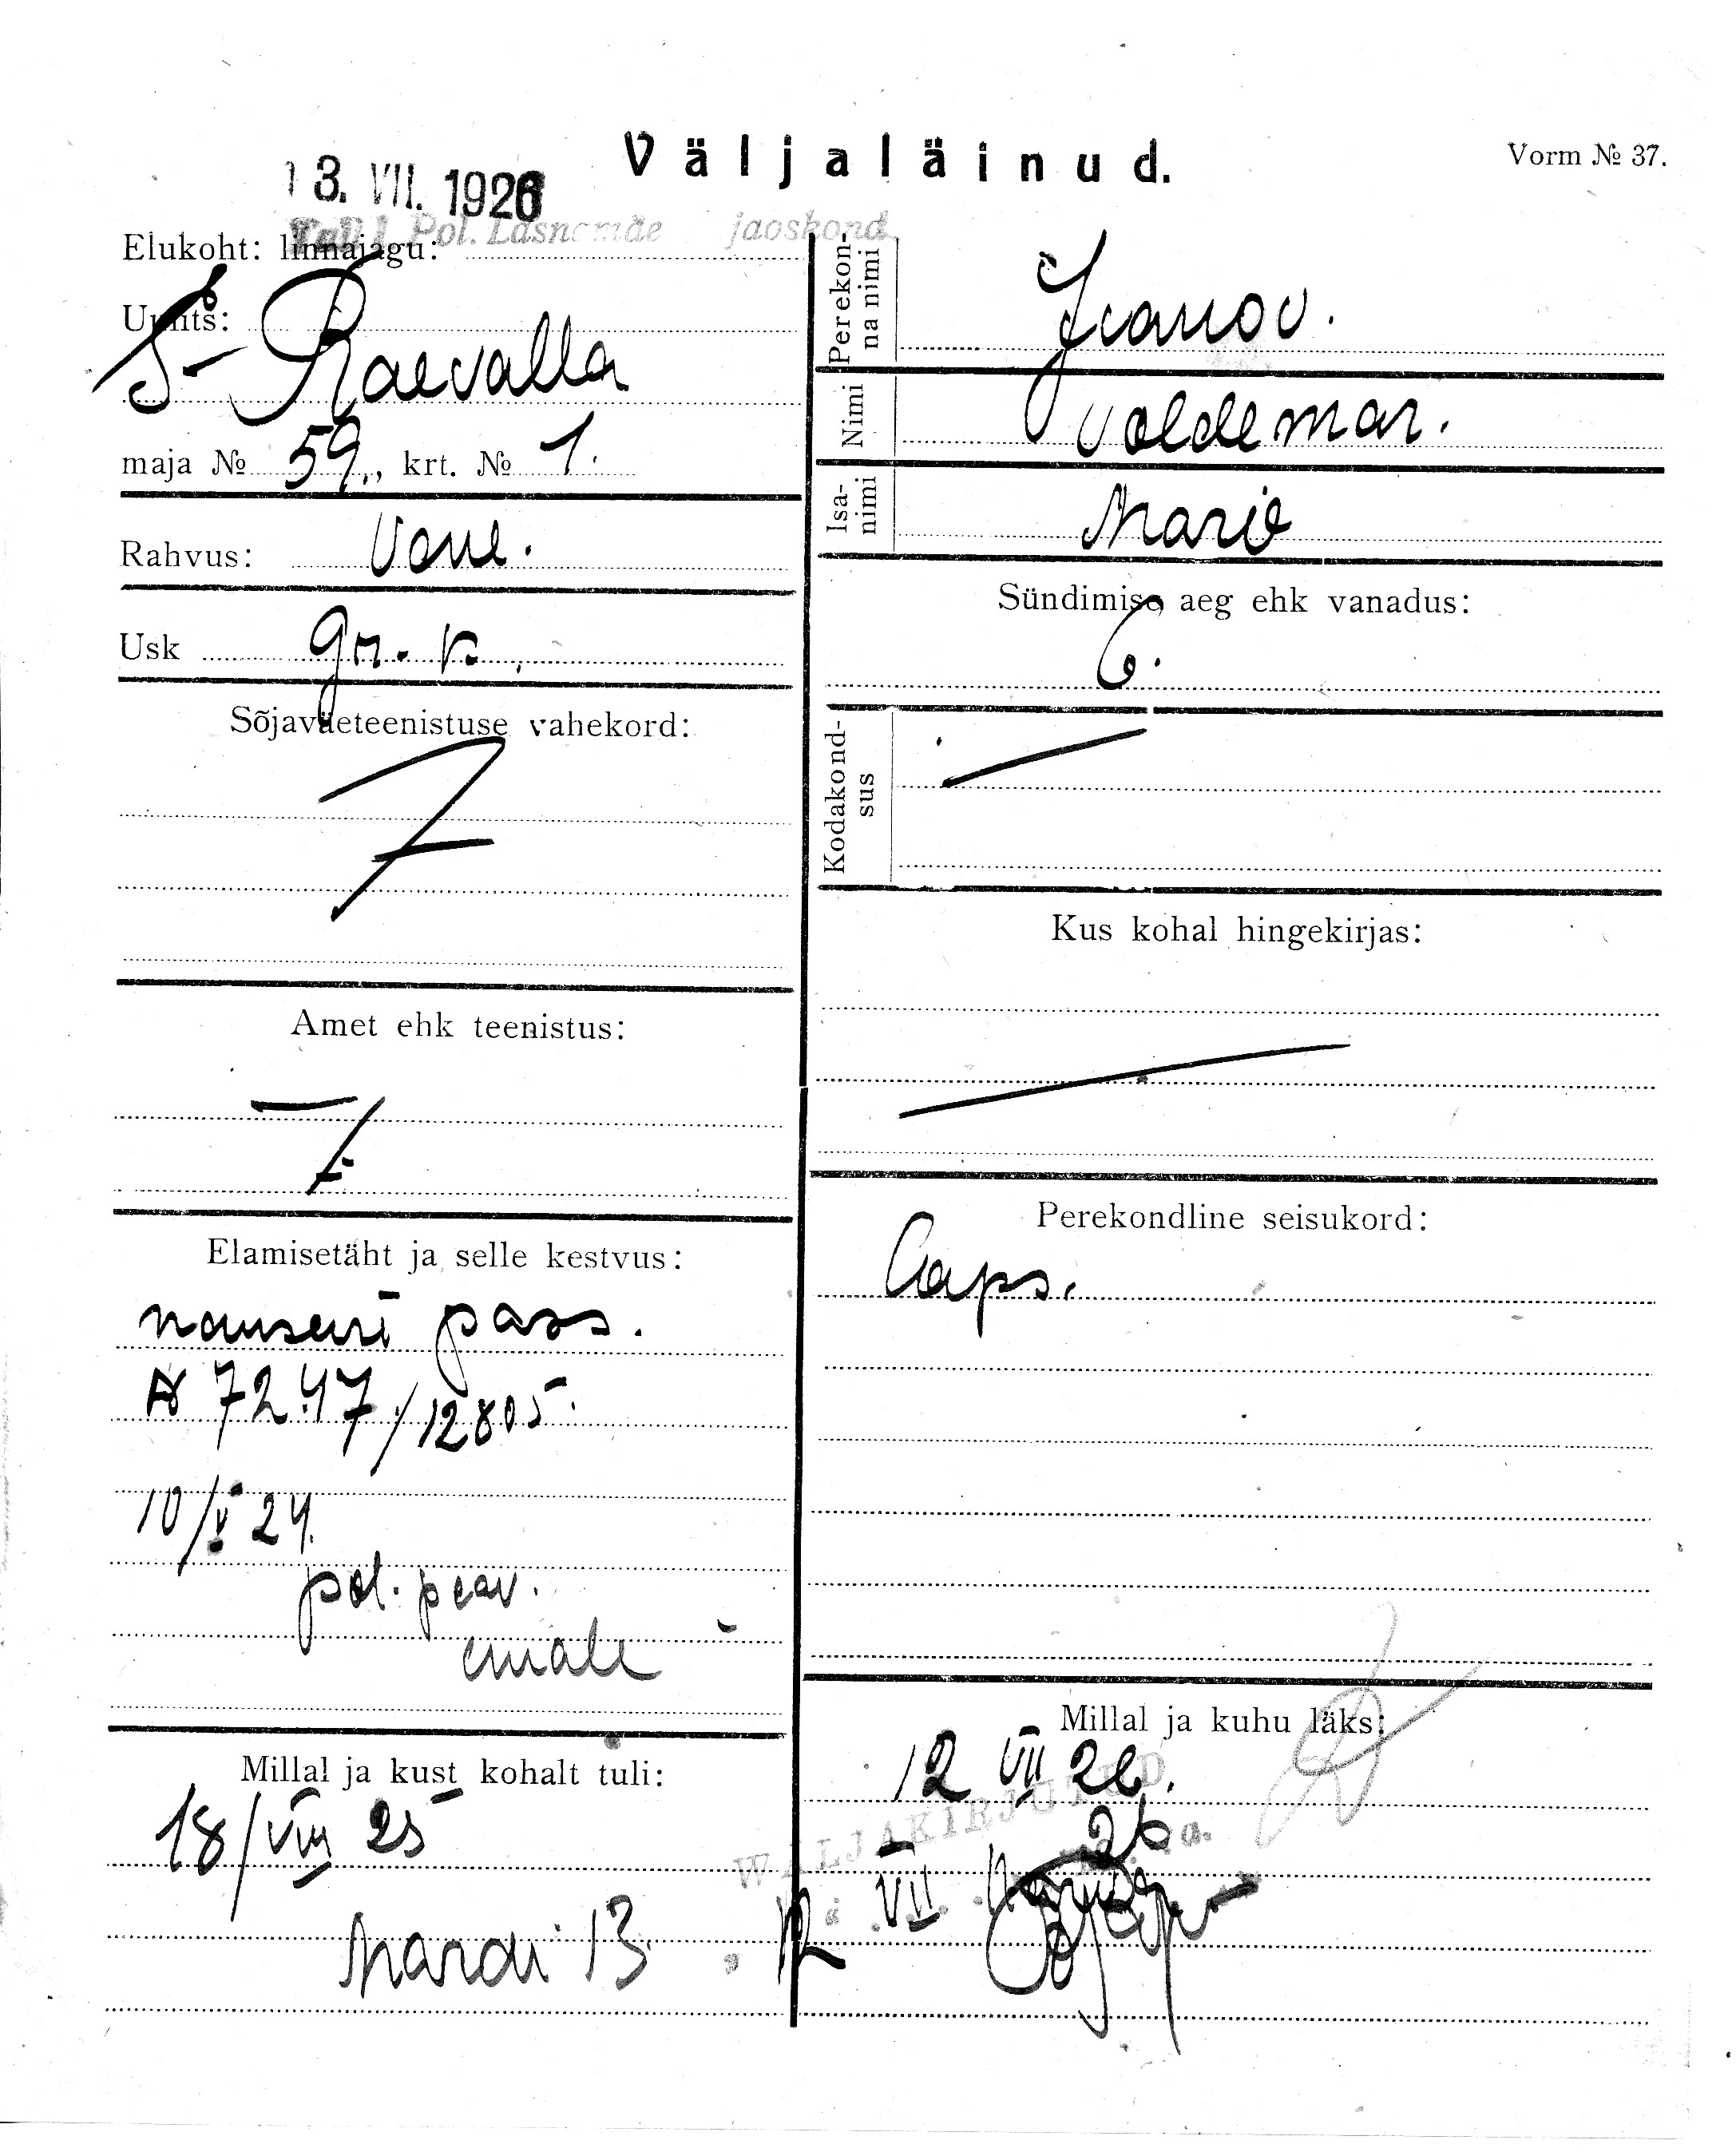 Väljaläinud.
Vorm № 37.
13. VII. 1926
Tall. Pol. Lasnamäe jaoskond
Elukoht: linnajagu:
Uulits:
S- Raevalla
maja № 59., krt. № 1.
Rahvus: vene.
Usk gr. k.
Sõjaväeteenistuse vahekord:
Amet ehk teenistus:
Elamisetäht ja selle kestvus:
nanseni pass.
№ 7247/12805.
10/V 24.
pol. peav.
emale
Millal ja kust kohalt tuli:
18/VIII 25
Mardi 13.
Perekonna nimi
Ivanov.
Nimi
Voldemar.
Isanimi
Marie
Sündimise aeg ehk vanadus:
6.
Kodakondsus
Kus kohal hingekirjas:
Perekondline seisukord:
Laps.
Millal ja kuhu läks:
12 VII 26.
WÄLJAKIRJUTUD
26 a.
12 VII